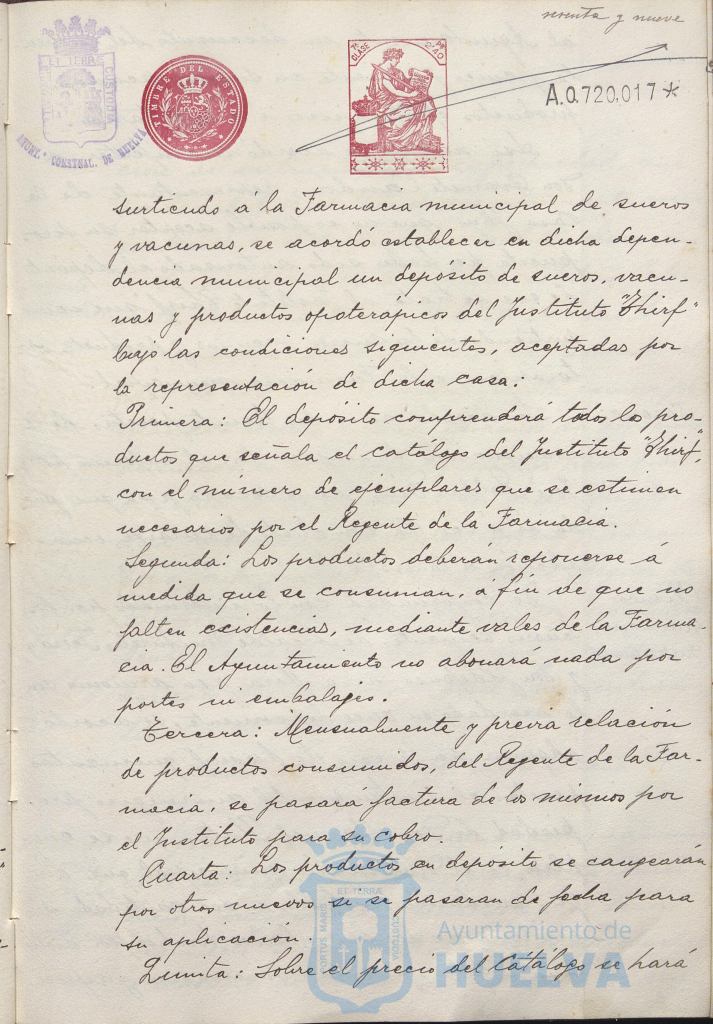 y nueve
AYUNT.º CONSTNAL. DE HUELVA
ET TERRÆ
CUSTODIA
TIMBRE DEL ESTADO
7ª CLASE
PTS 2'40
A.0,720,017*
surtiendo á la Farmacia municipal de sueros
y vacunas, se acordó establecer en dicha depen-
dencia municipal un depósito de sueros, vacu-
nas y productos opoterápicos del Instituto "Thirf"
bajo las condiciones siguientes, aceptadas por
la representación de dicha casa:
Primera: El depósito comprenderá todos los pro-
ductos que señala el catálogo del Instituto "Thirf",
con el número de ejemplares que se estimen
necesarios por el Regente de la Farmacia.
Segunda: Los productos deberán reponerse á
medida que se consuman, á fin de que no
falten existencias, mediante vales de la Farma-
cia. El Ayuntamiento no abonará nada por
portes ni embalajes.
Tercera: Mensualmente y previa relación
de productos consumidos, del Regente de la Far-
macia, se pasará factura de los mismos por
el Instituto para su cobro.
Cuarta: Los productos en depósito se cangearán
por otros nuevos si se pasaran de fecha para
su aplicación.
Quinta: Sobre el precio del Catálogo se hará
PORTUS MARIS
ET TERRÆ
CUSTODIA
Ayuntamiento de
HUELVA